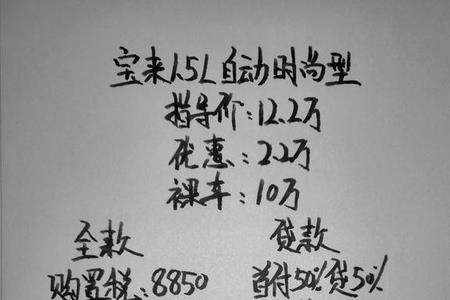 宝来1.5L自动时尚型
指导价:12.2万
优惠:2.2万
裸车:10万
全款 贷款
购置税:8850 首付50%贷50%